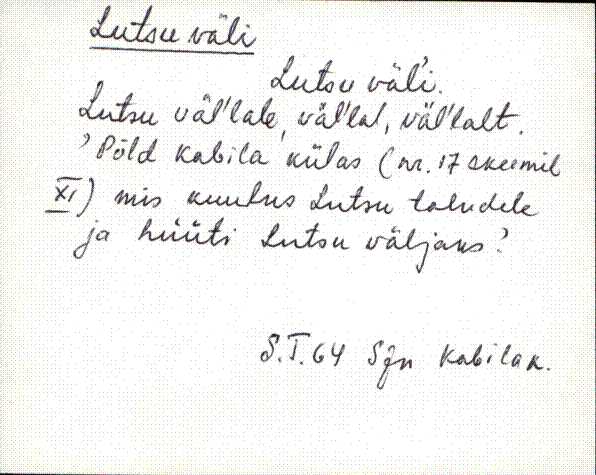 Lutsu väli
Lutsu väl'i.
Lutsu väl'lale, väl'lal, väl'lalt.
'Põld Kabila külas (nr. 17 skeemil
XI) mis kuulus Lutsu taludele
ja hüüti Lutsu väljaks.'
S.T. 64 Sjn Kabilak.